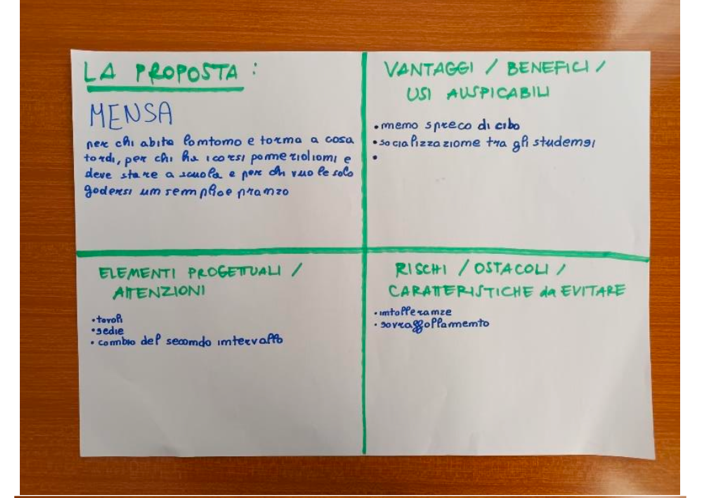 LA PROPOSTA:
MENSA
per chi abita lontano e torna a casa
tardi, per chi ha i corsi pomeridiani e
deve stare a scuola e per chi vuole solo
godersi un semplice pranzo
VANTAGGI / BENEFICI /
USI AUSPICABILI
• meno spreco di cibo
• socializzazione tra gli studenti
•
ELEMENTI PROGETTUALI /
ATTENZIONI
• tavoli
• sedie
• cambio del secondo intervallo
RISCHI / OSTACOLI /
CARATTERISTICHE da EVITARE
• intolleranze
• sovraffollamento